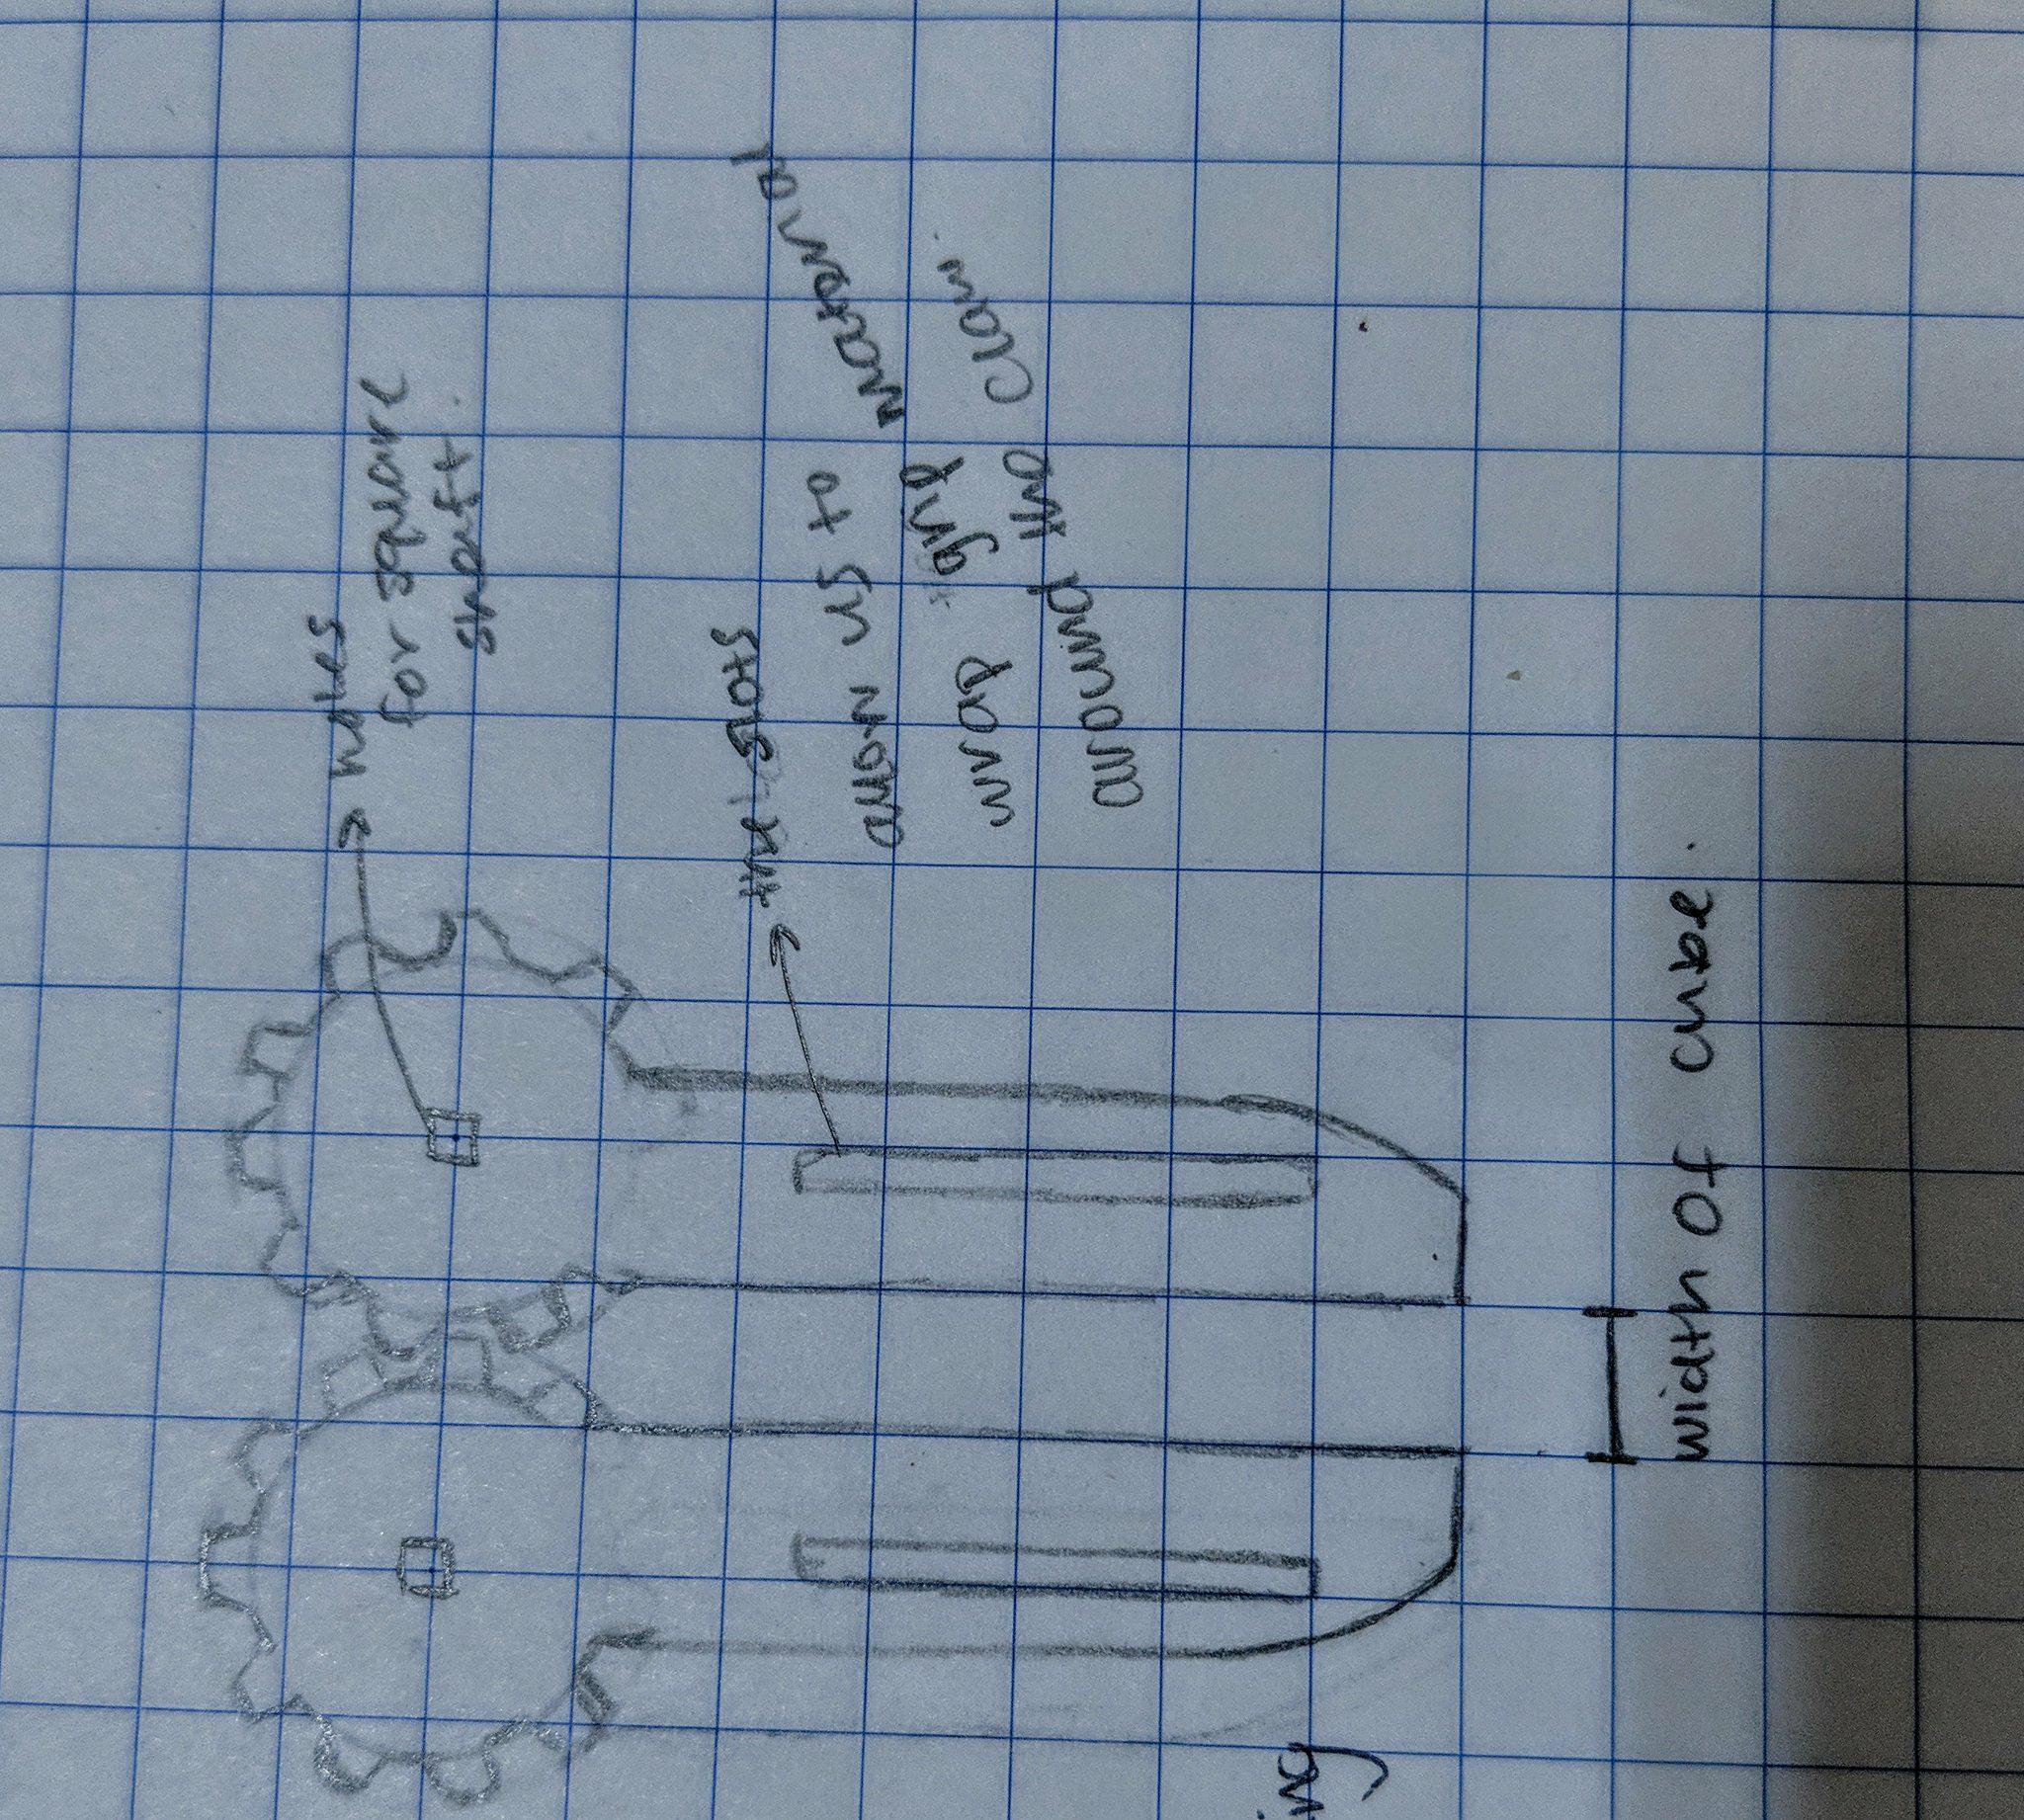 holes
for square
shaft.
the slots
allow us to
wrap grip material
around the claw.
width of cube.
ing